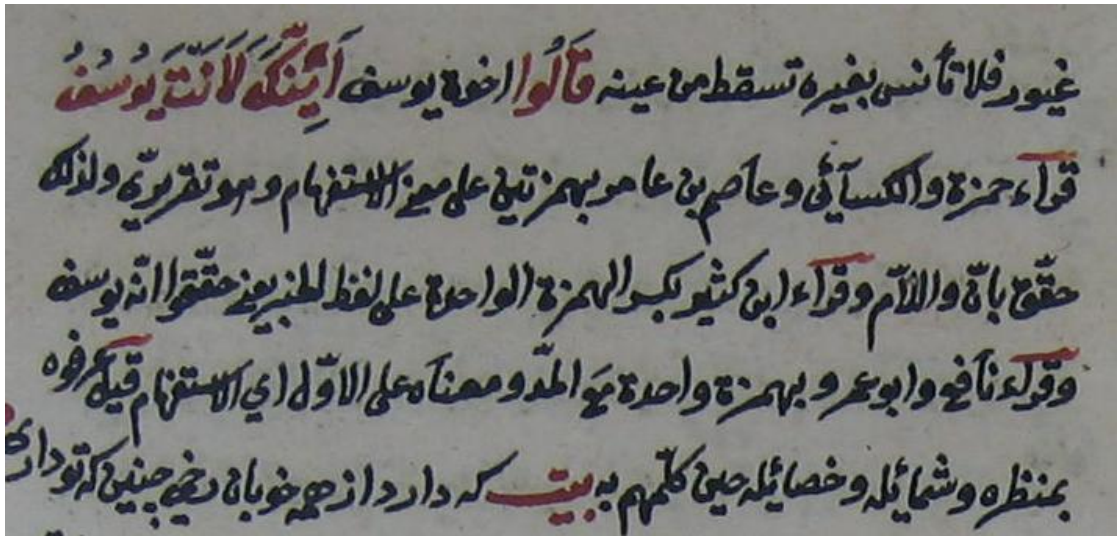 غيور فلا تأنس بغيره تسقط من عينه قَالُوا اخوة يوسف أَئِنَّكَ لَأَنْتَ يُوسُفُ
قرآء حمزة والكسآئي وعاصم بن عامر بهمزتين على معنى الاستفهام وهو تقريريّ ولذلك
حقّق بانّ واللاّم وقرآء ابن كثير بكسر الهمزة الواحدة على لفظ الخبر يعني حقّقوا انّه يوسف
وقرآء نافع وابو عمرو بهمزة واحدة مع المدّ ومعناه على الاوّل اي الاستفهام قيل عرفوه
بمنظره وشمائله وخصائله حين كلّمهم به بيت كه دارد از همه خوبان رخى چنين كه تو دارى